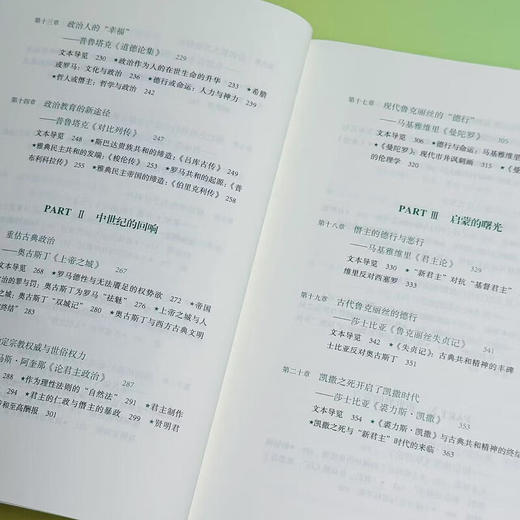 第十三章 政治人的“幸福”
——普鲁塔克《道德论集》 229
文本导览 230 ★政治作为人的在世生命的升华 233 ★希腊
或罗马：文化与政治 236 ★德行或命运：人力与神力 239
★哲人或僭主：哲学与政治 242
第十四章 政治教育的新途径
——普鲁塔克《对比列传》 247
文本导览 248 ★斯巴达贵族共和的缔造：《吕库古传》 249
★雅典民主共和的发端：《梭伦传》 251 ★罗马共和的起源：《普
布利科拉传》 255 ★雅典民主帝国的缔造：《伯里克利传》 258
PART Ⅱ 中世纪的回响
重估古典政治
——奥古斯丁《上帝之城》 267
文本导览 268 ★罗马德性与无法餍足的权势欲 272 ★帝国
政治的罪与罚：奥古斯丁为罗马“祛魅” 276 ★上帝之城与人
之城：奥古斯丁“双城记” 281 ★奥古斯丁与西方古典文明
终结” 285
定宗教权威与世俗权力
马斯·阿奎那《论君主政治》 287
288 ★作为理性法则的“自然法” 291 ★君主制作
299 ★君主的仁政与僭主的暴政 297 ★贤明君
和至高酬报 301
第十七章 现代鲁克丽丝的“德行”
——马基雅维里《曼陀罗》 305
文本导览 306 ★德行与命运：马基雅维里
★《曼陀罗》：现代市井讽刺画 315 ★《曼
的伦理学 320
PART Ⅲ 启蒙的曙光
第十八章 僭主的德行与恶行
——马基雅维里《君主论》 329
文本导览 330 ★“新君主”对抗“基督君主”
维里反对西塞罗
第十九章 古代鲁克丽丝的德行
——莎士比亚《鲁克丽丝失贞记》 341
文本导览 342 ★《失贞记》：古典共和精神的丰碑
士比亚反对奥古斯丁 351
第二十章 凯撒之死开启了凯撒时代
——莎士比亚《裘力斯·凯撒》 353
文本导览 354 ★《裘力斯·凯撒》与古典共和精神的终结
★凯撒之死与“新君主”时代的来临 363